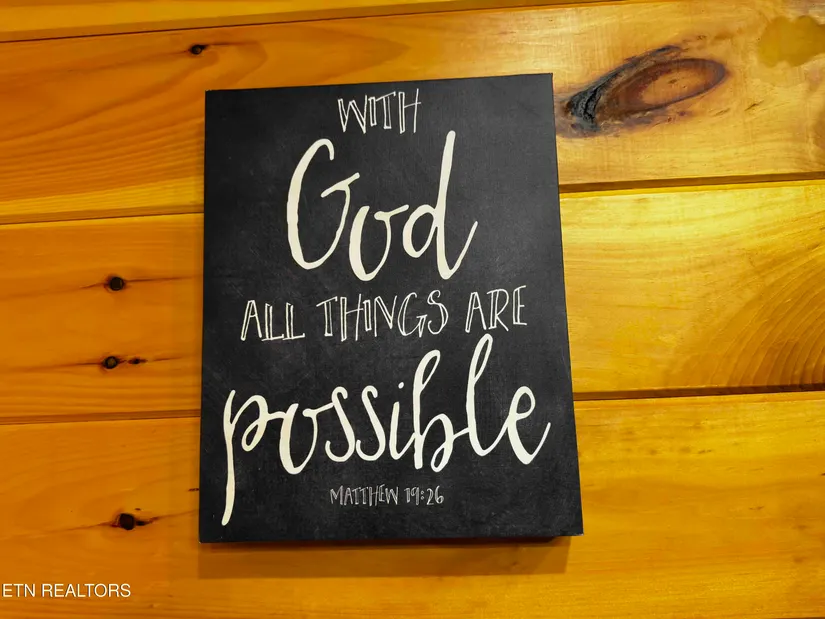 WITH
God
ALL THINGS ARE
possible
MATTHEW 19:26
ETN REALTORS